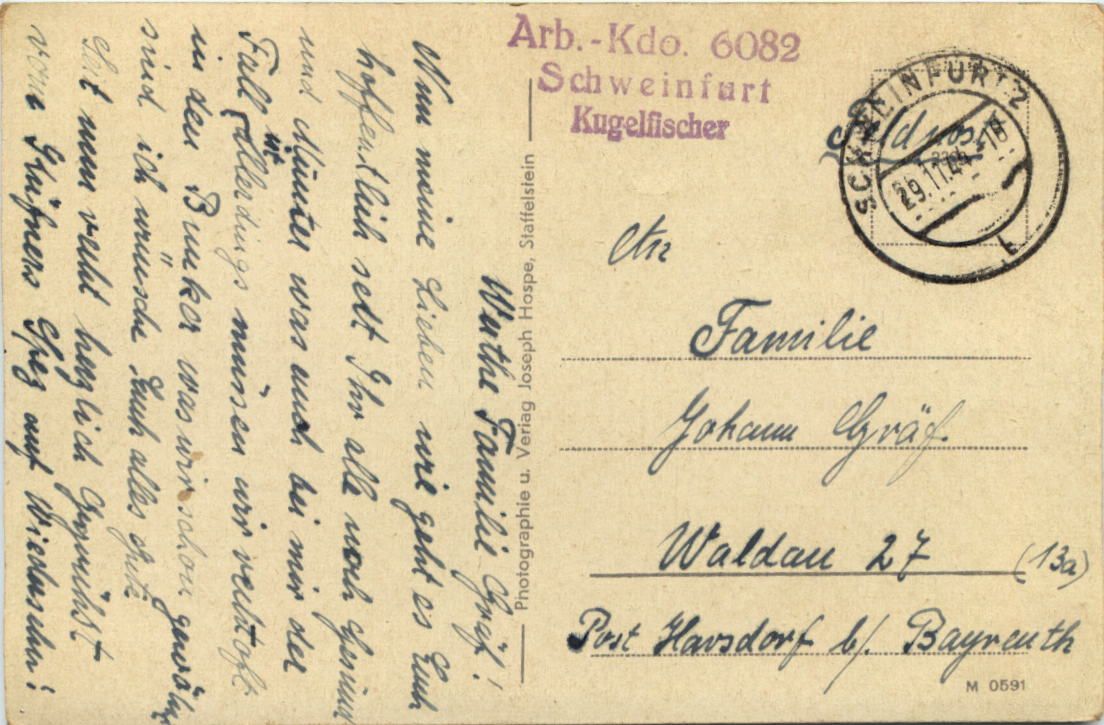 Arb.-Kdo. 6082
Schweinfurt
Kugelfischer
SCHWEINFURT 2
29.11.44.-18
t
Feldpost
An
Familie
Johann Gräf.
Waldau 27 (13a)
Post Harsdorf b/. Bayreuth
M 0591
Photographie u. Verlag Joseph Hospe, Staffelstein
Werthe Familie Gräf!
Nun meine Lieben wie geht es Euch
hoffentlich seit Ihr alle noch Gesund
und Munter was auch bei mir der
Fall ist Allerdings müssen wir recht oft
in den Bunker was wir schon gewöhnt
sind ich wünsche Euch alles Gute
Seit nun recht herzlich Gegrüßt
vom auf Wiedersehen!